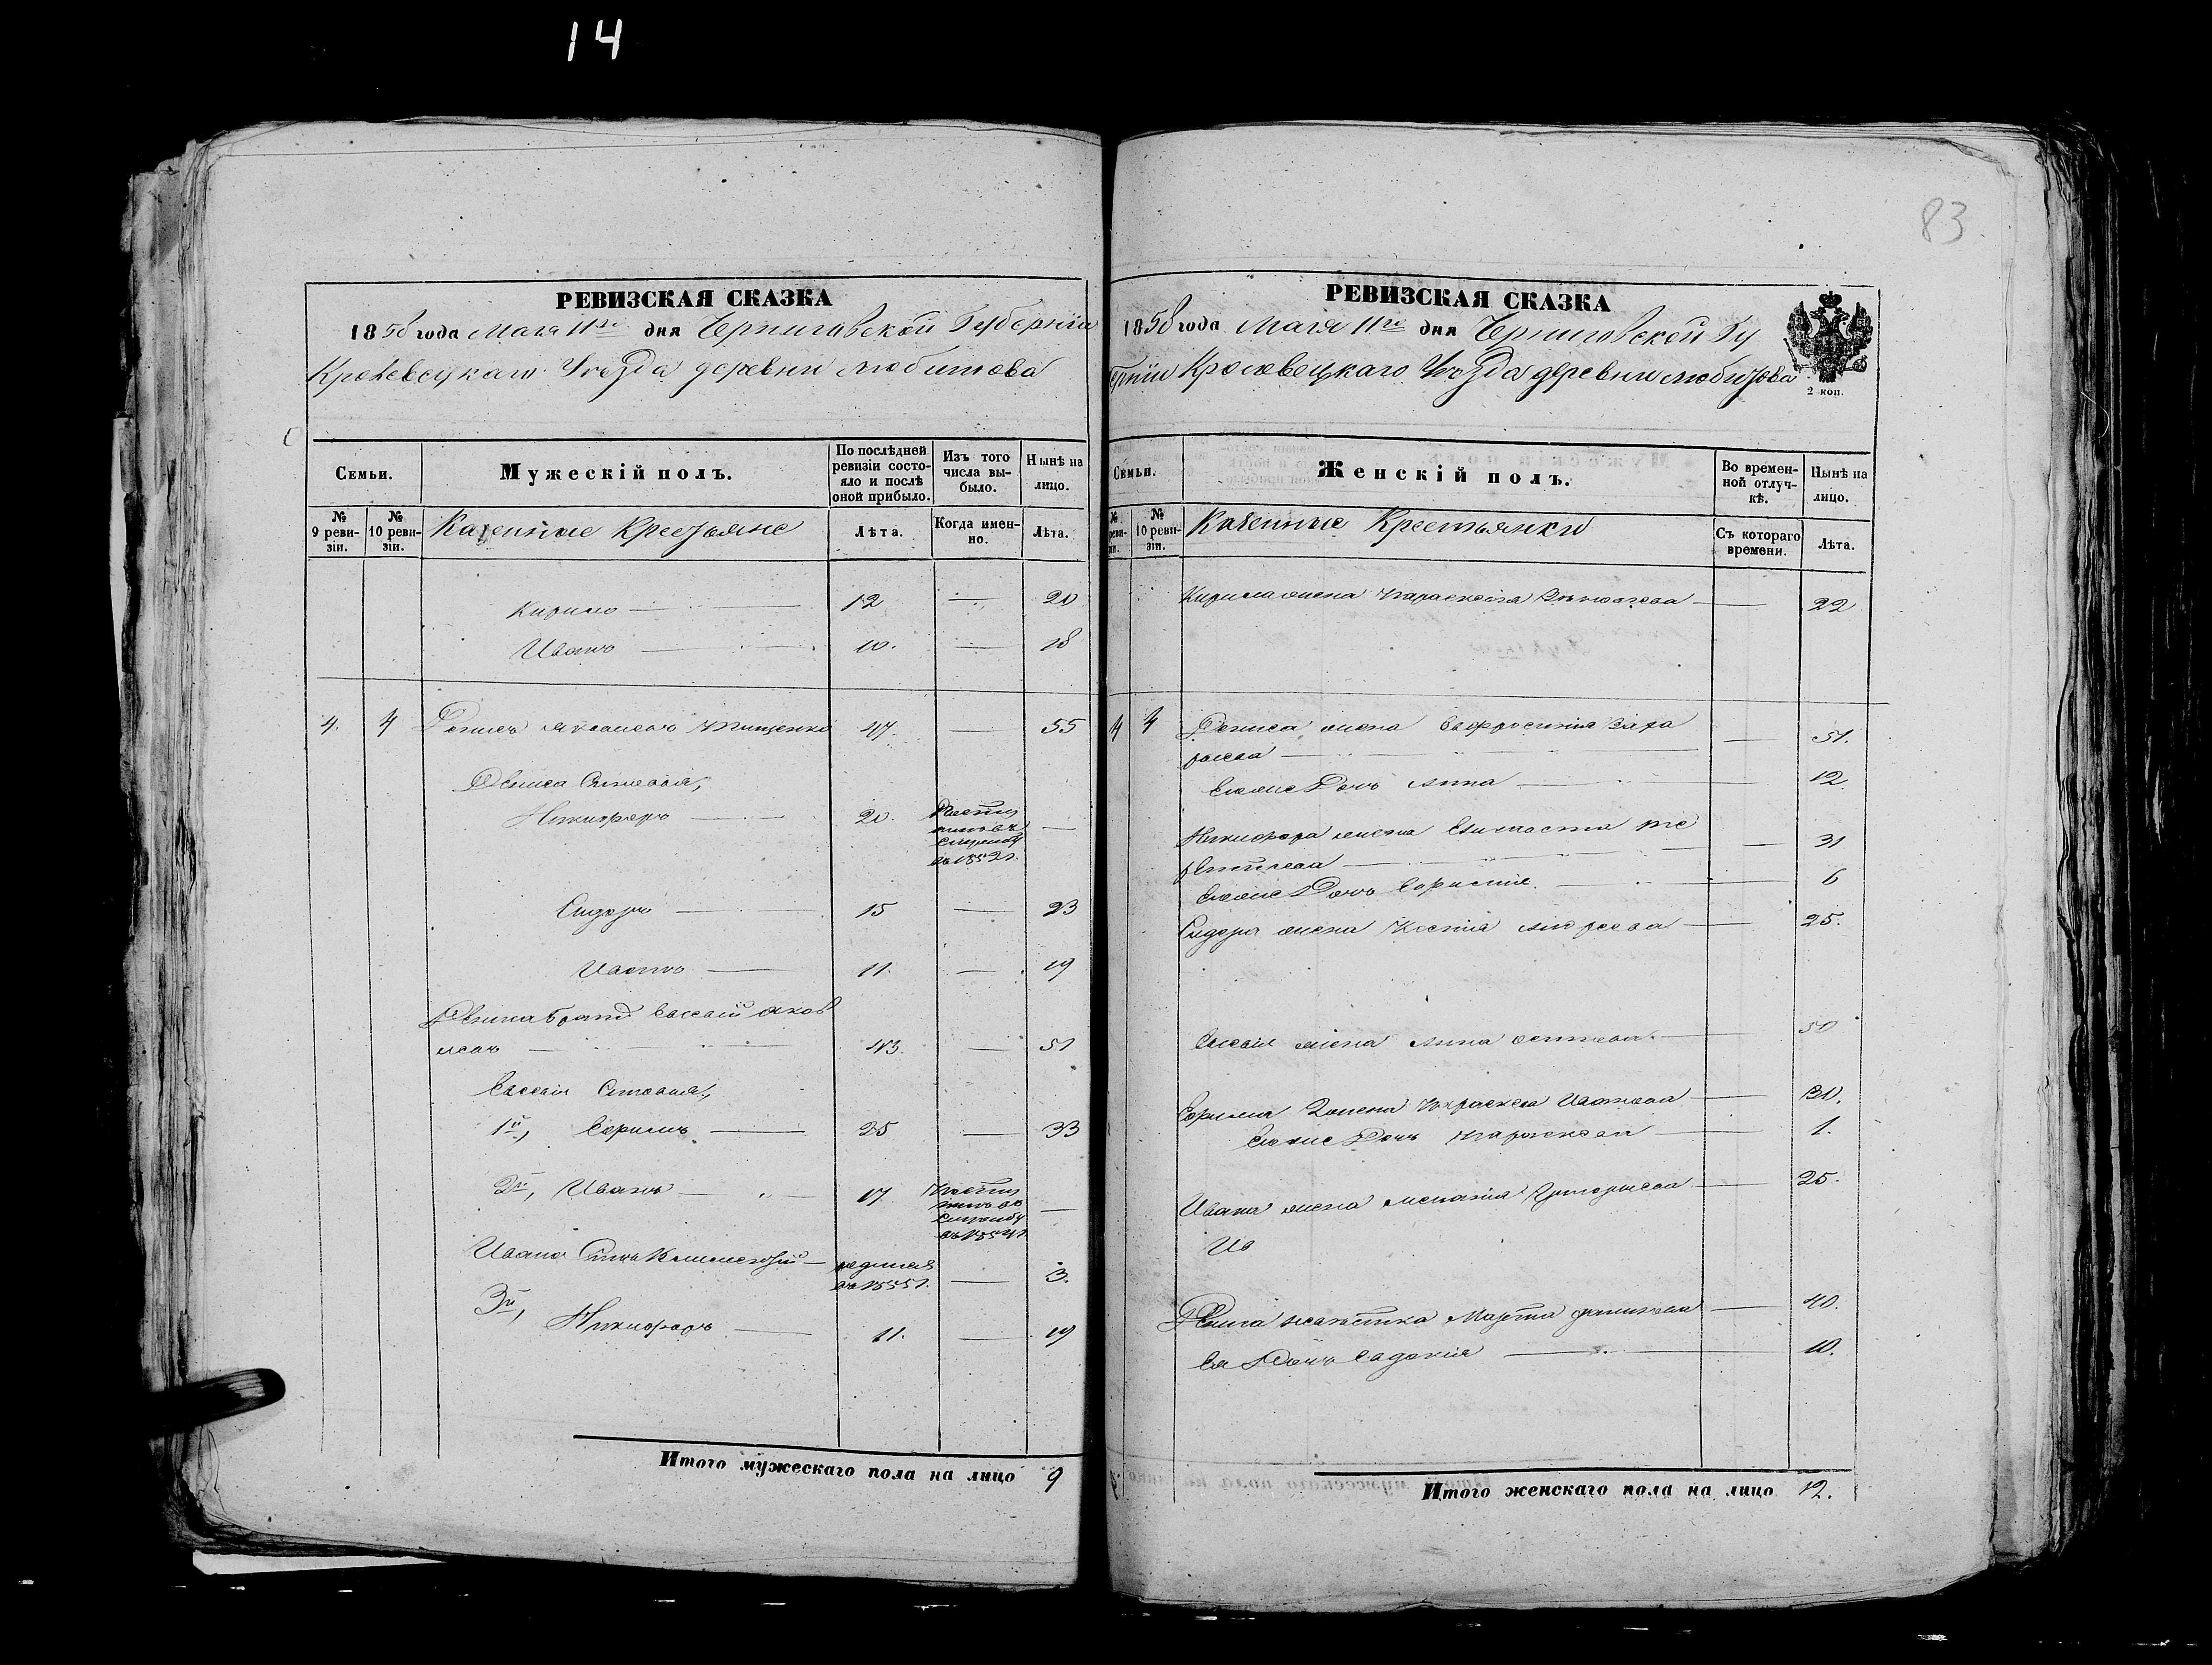 14
83
РЕВИЗСКАЯ СКАЗКА
1858 года Мая 11го дня Черниговской Губерніи
Кролевецкаго Уѣзда деревни Любитова
Семьи.
Мужескій полъ.
По послѣдней ревизіи состояло и послѣ оной прибыло.
Изъ того числа выбыло.
Нынѣ на лицо.
№ 9 ревизіи.
№ 10 ревизіи.
Казенные Крестьяне
Лѣта.
Когда именно.
Лѣта.
Кирило 12 — 20
Иванъ 10. — 18
4. 4 Денисъ Тищенко 47. — 55
Дениса Сыновья,
Никифоръ 20. —
въ 1852 г.
Сидоръ 15 — 23
Иванъ 11. — 19
Дениса братъ Евсей Яков
левъ 43. — 51
Евсея Сыновья,
1й, Ефимъ 25 — 33
2й, Иванъ 17 —
Ивана Сынъ — родился
въ 1855 г. — 3.
3й, Никифоръ 11. — 19
Итого мужескаго пола на лицо 9
РЕВИЗСКАЯ СКАЗКА
1858 года Мая 11го дня Черниговской Гу
ерніи Кролевецкаго Уѣзда деревни Любитова
2 коп.
Семьи.
Женскій полъ.
Во временной отлучкѣ.
Нынѣ на лицо.
№ ревизіи.
№ 10 ревизіи.
Казенные Крестьянки
Съ котораго времени.
Лѣта.
Кирила жена Параскевія — 22
4 4 Дениса жена Евфросинія Заха
рьева — 51.
Дочь Анна — 12.
Никифора жена — 31
Дочь — 6
Сидора жена Ксенія Андреева — 25.
Евсея жена Анна — 50
Ефима жена Параскева Иванова — 30.
Дочь Параскева — 1.
Ивана жена Меланія Григорьева — 25.
Ив
Дениса Марта — 40.
Ея Дочь Евдокія — 10.
Итого женскаго пола на лицо 12.